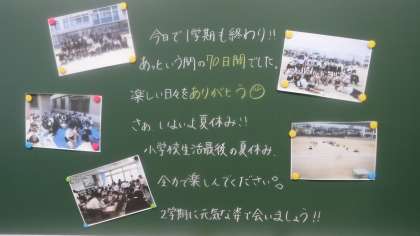 今日で1学期も終わり!!
あっという間の70日間でした。
楽しい日々をありがとう
さぁ、いよいよ夏休み!!
小学校生活最後の夏休み、
全力で楽しんでください。
2学期に元気な姿で会いましょう!!